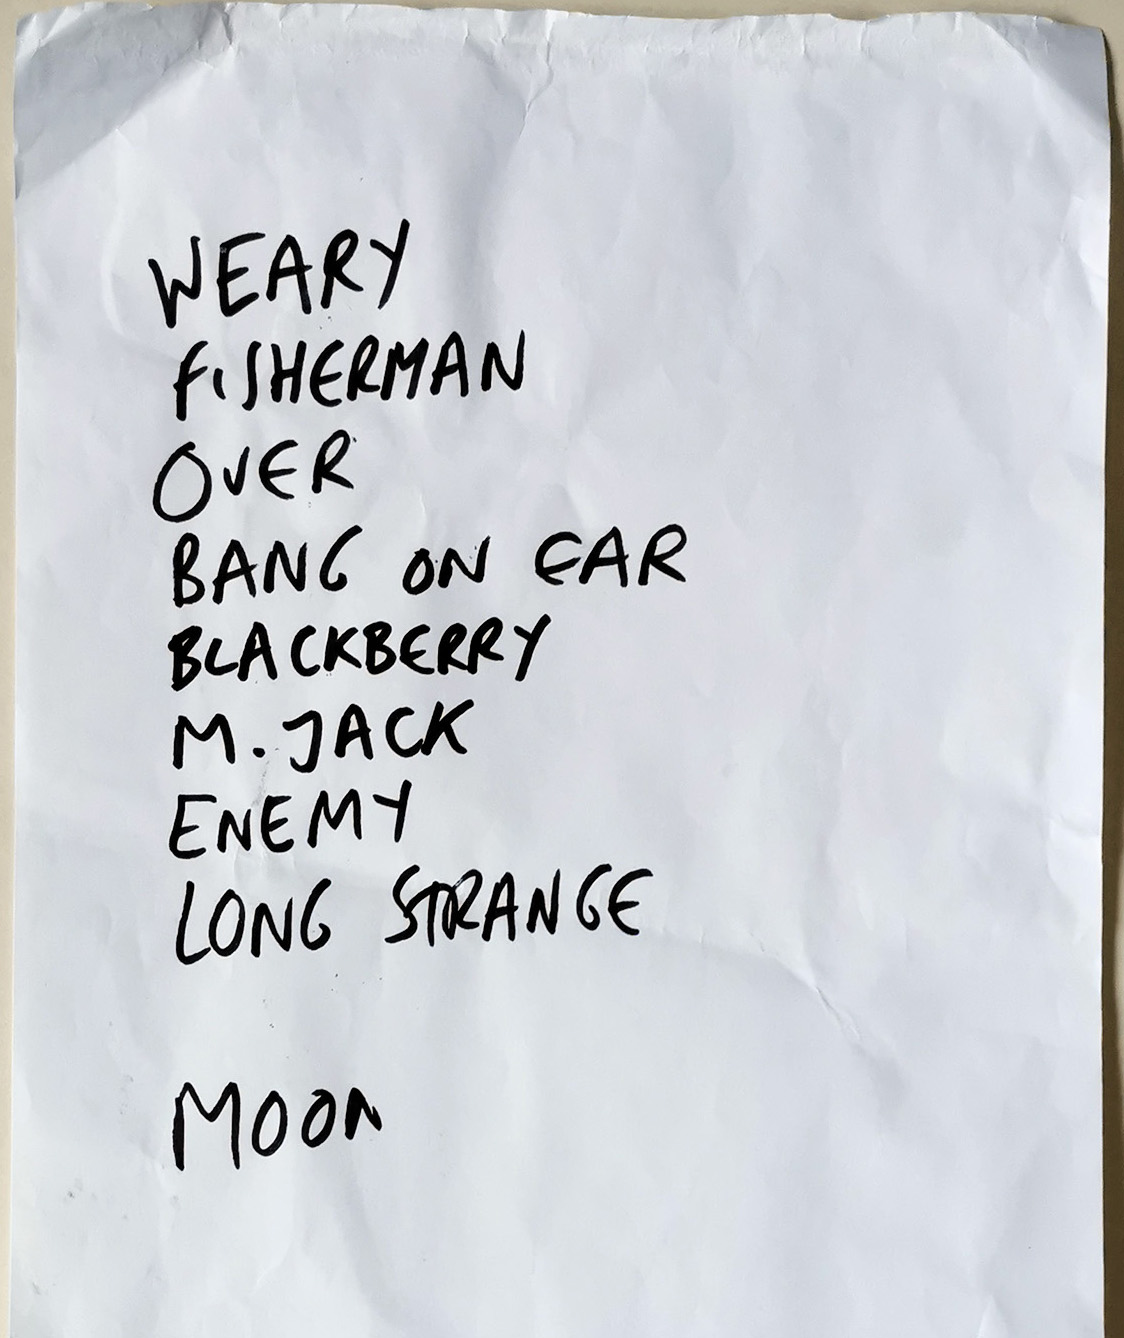 WEARY
FISHERMAN
OVER
BANG ON EAR
BLACKBERRY
M. JACK
ENEMY
LONG STRANGE
MOON